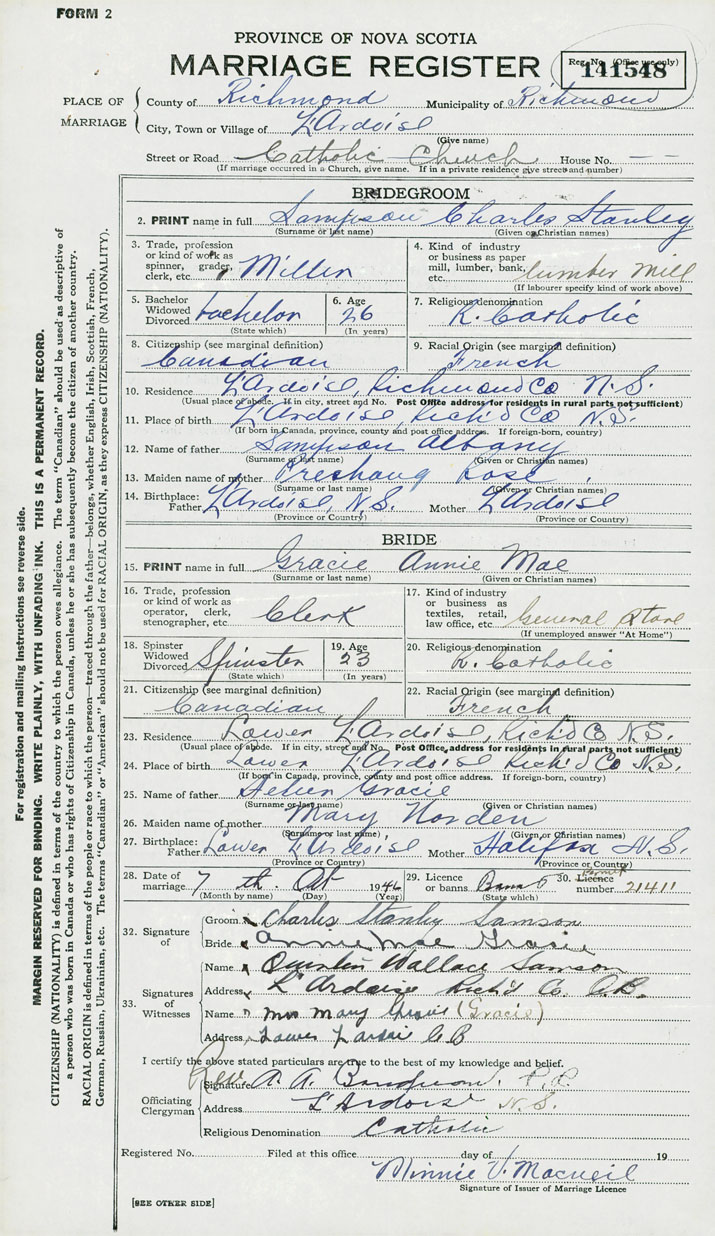 FORM 2
PROVINCE OF NOVA SCOTIA
MARRIAGE REGISTER
Reg. No. (Office use only)
141548
PLACE OF MARRIAGE
County of Richmond Municipality of Richmond
City, Town or Village of L'Ardoise
(Give name)
Street or Road Catholic Church House No. — —
(If marriage occurred in a Church, give name. If in a private residence give street and number)
BRIDEGROOM
2. PRINT name in full Sampson Charles Stanley
(Surname or last name) (Given or Christian names)
3. Trade, profession or kind of work as spinner, grader, clerk, etc. Miller
4. Kind of industry or business as paper mill, lumber, bank, etc. lumber mill
(If labourer specify kind of work above)
5. Bachelor Widowed Divorced bachelor
(State which)
6. Age 26
(In years)
7. Religious denomination R. Catholic
8. Citizenship (see marginal definition) Canadian
9. Racial Origin (see marginal definition) French
10. Residence L'Ardoise, Richmond Co N. S.
(Usual place of abode. If in city, street and No. Post Office address for residents in rural parts not sufficient)
11. Place of birth L'Ardoise, Rich'd Co N.S.
(If born in Canada, province, county and post office address. If foreign-born, country)
12. Name of father Sampson Albany
(Surname or last name) (Given or Christian names)
13. Maiden name of mother Rose
(Surname or last name) (Given or Christian names)
14. Birthplace: Father L'Ardoise, N.S. Mother L'Ardoise
(Province or Country) (Province or Country)
BRIDE
15. PRINT name in full Gracie Annie Mae
(Surname or last name) (Given or Christian names)
16. Trade, profession or kind of work as operator, clerk, stenographer, etc. Clerk
17. Kind of industry or business as textiles, retail, law office, etc. General Store
(If unemployed answer "At Home")
18. Spinster Widowed Divorced Spinster
(State which)
19. Age 23
(In years)
20. Religious denomination R. Catholic
21. Citizenship (see marginal definition) Canadian
22. Racial Origin (see marginal definition) French
23. Residence Lower L'Ardoise, Rich'd Co N.S.
(Usual place of abode. If in city, street and No. Post Office address for residents in rural parts not sufficient)
24. Place of birth Lower L'Ardoise Rich'd Co N.S.
(If born in Canada, province, county and post office address. If foreign-born, country)
25. Name of father Gracie
(Surname or last name) (Given or Christian names)
26. Maiden name of mother Mary Norden
(Surname or last name) (Given or Christian names)
27. Birthplace: Father Lower L'Ardoise Mother Halifax N.S.
(Province or Country) (Province or Country)
28. Date of marriage 7 th. Oct 1946
(Month by name) (Day) (Year)
29. Licence or banns Banns
(State which)
30. Licence Permit number 21411
32. Signature of
Groom Charles Stanley Samson
Bride Annie Mae Gracie
33. Signatures of Witnesses
Name Quintin Wallace Samson
Address L'Ardoise Rich'd Co. C.B.
Name Mrs Mary (Gracie)
Address Lower C B
I certify the above stated particulars are true to the best of my knowledge and belief.
Officiating Clergyman
Rev Signature A. A. P. P.
Address L'Ardoise N.S.
Religious Denomination Catholic
Registered No. Filed at this office day of 19
Minnie V. Macneil
Signature of Issuer of Marriage Licence
[SEE OTHER SIDE]
For registration and mailing instructions see reverse side.
MARGIN RESERVED FOR BINDING. WRITE PLAINLY, WITH UNFADING INK. THIS IS A PERMANENT RECORD.
CITIZENSHIP (NATIONALITY) is defined in terms of the country to which the person owes allegiance. The term "Canadian" should be used as descriptive of
a person who was born in Canada or who has rights of Citizenship in Canada, unless he or she has subsequently become the citizen of another country.
RACIAL ORIGIN is defined in terms of the people or race to which the person—traced through the father—belongs, whether English, Irish, Scottish, French,
German, Russian, Ukrainian, etc. The terms "Canadian" or "American" should not be used for RACIAL ORIGIN, as they express CITIZENSHIP (NATIONALITY).